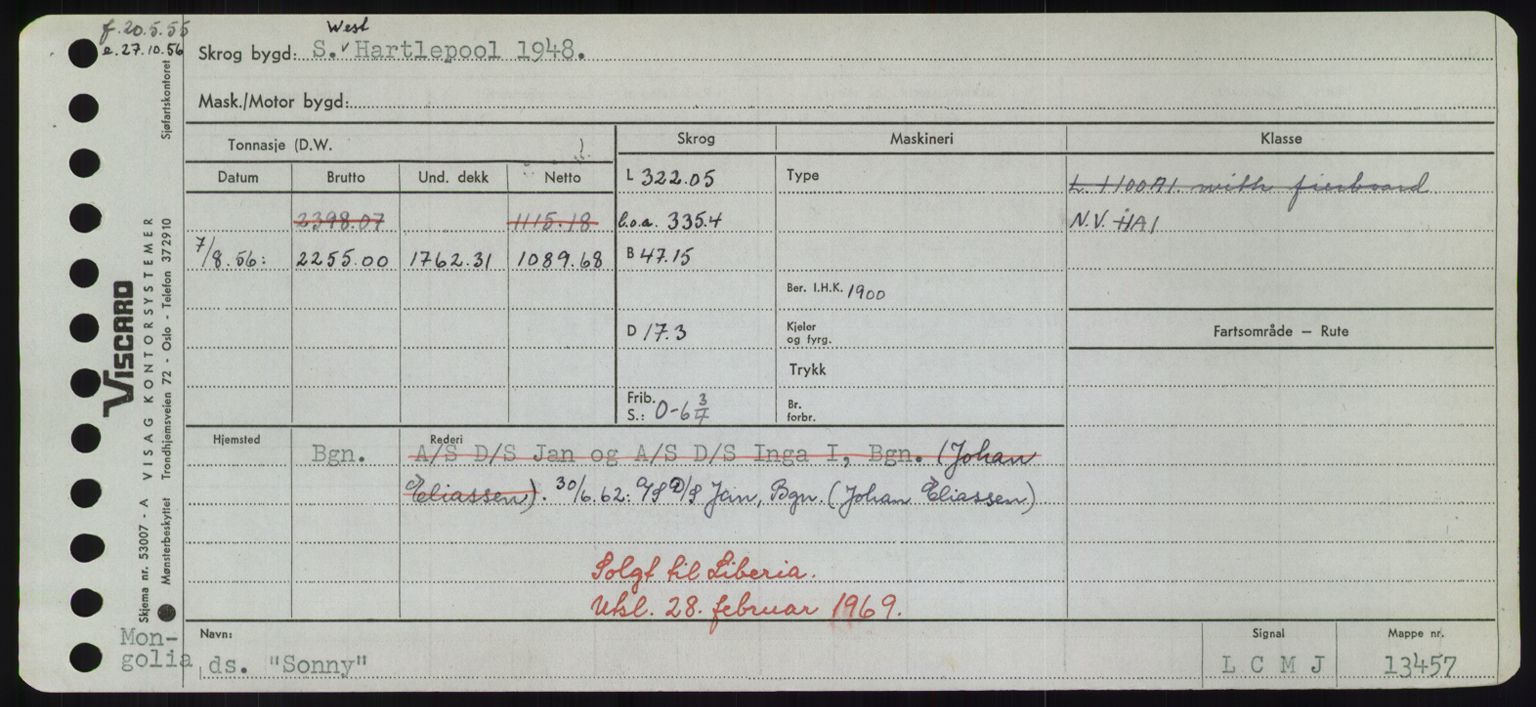 f. 20.5.55
e. 27.10.56
West
Skrog bygd: S. v Hartlepool 1948.
Mask./Motor bygd:
Tonnasje (D.W. ).
Skrog
Maskineri
Klasse
Datum Brutto Und. dekk Netto
L 322.05
Type
L +100A1. with freeboard
2398.07 1115.18
l.o.a. 335.4
N.V. +1A1
7/8.56: 2255.00 1762.31 1089.68
B 47.15
Ber. I.H.K. 1900
D 17.3
Kjeler og fyrg.
Fartsområde — Rute
Trykk
Frib. S.: 0-6 3/4
Br. forbr.
Hjemsted
Rederi
Bgn.
A/S D/S Jan og A/S D/S Inga I, Bgn. (Johan
Eliassen). 30/6.62: A/S D/S Jan, Bgn. (Johan Eliassen)
Solgt til Liberia.
Utsl. 28. februar 1969.
Mon-
golia
Navn:
ds. "Sonny"
Signal
L C M J
Mappe nr.
13457
VISCARD
Skjema nr. 53007 - A VISAG KONTORSYSTEMER
Mønsterbeskyttet Trondhjemsveien 72 - Oslo - Telefon 372910 Sjøfartskontoret